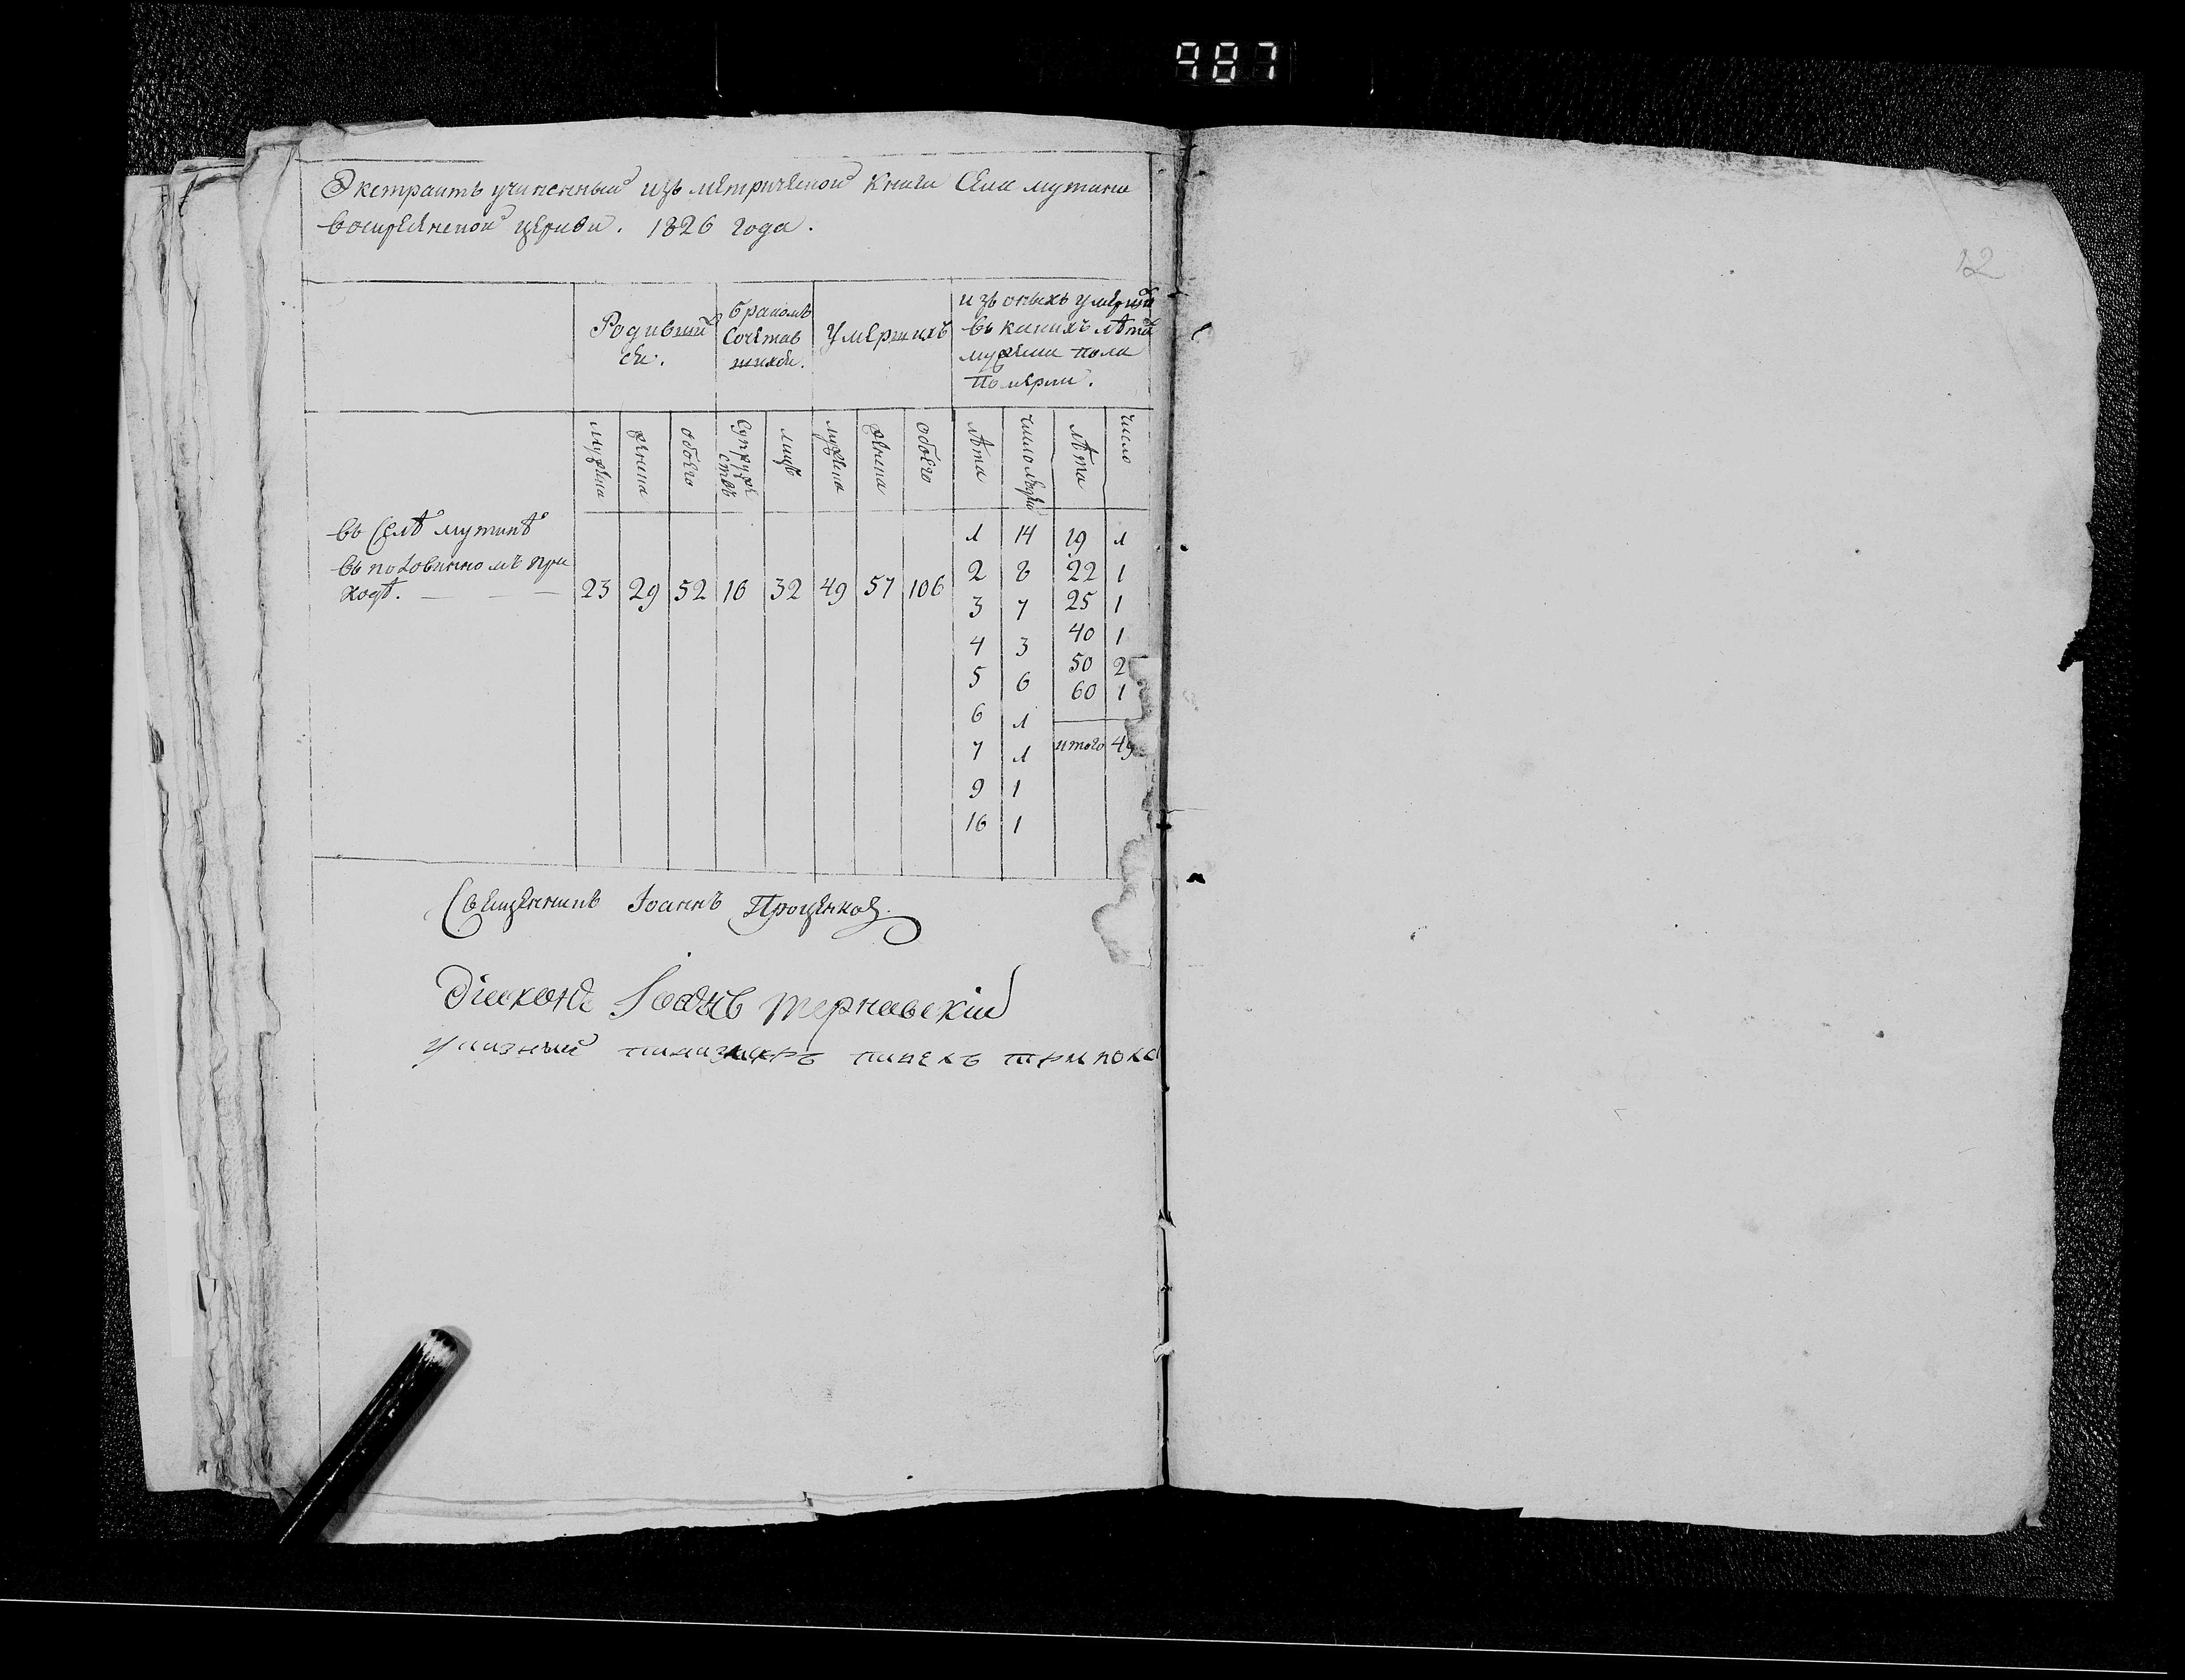 987
Экстрактъ учиненный изъ метрической книги Села мутина
воскресенской церкви. 1826 года.
Родивший
ся.
бракомъ
Сочетав
шихся.
умершихъ
изъ оныхъ умерший
въ какихъ лѣта
мужеска пола
Померли.
мужеска
женска
обоего
Супруже
ствъ
лицъ
мужеска
женска
обоего
лѣта
число людей
лѣта
число
въ Селѣ мутинѣ
въ половинномъ при
ходѣ. — — — 23 29 52 16 32 49 57 106
1 14 19 1
2 8 22 1
3 7 25 1
4 3 40 1
5 6 50 2
6 1 60 1
7 1 итого 49
9 1
16 1
Священникъ Іоаннъ Проценков.
Діаконъ Іоаннъ терновскій
12